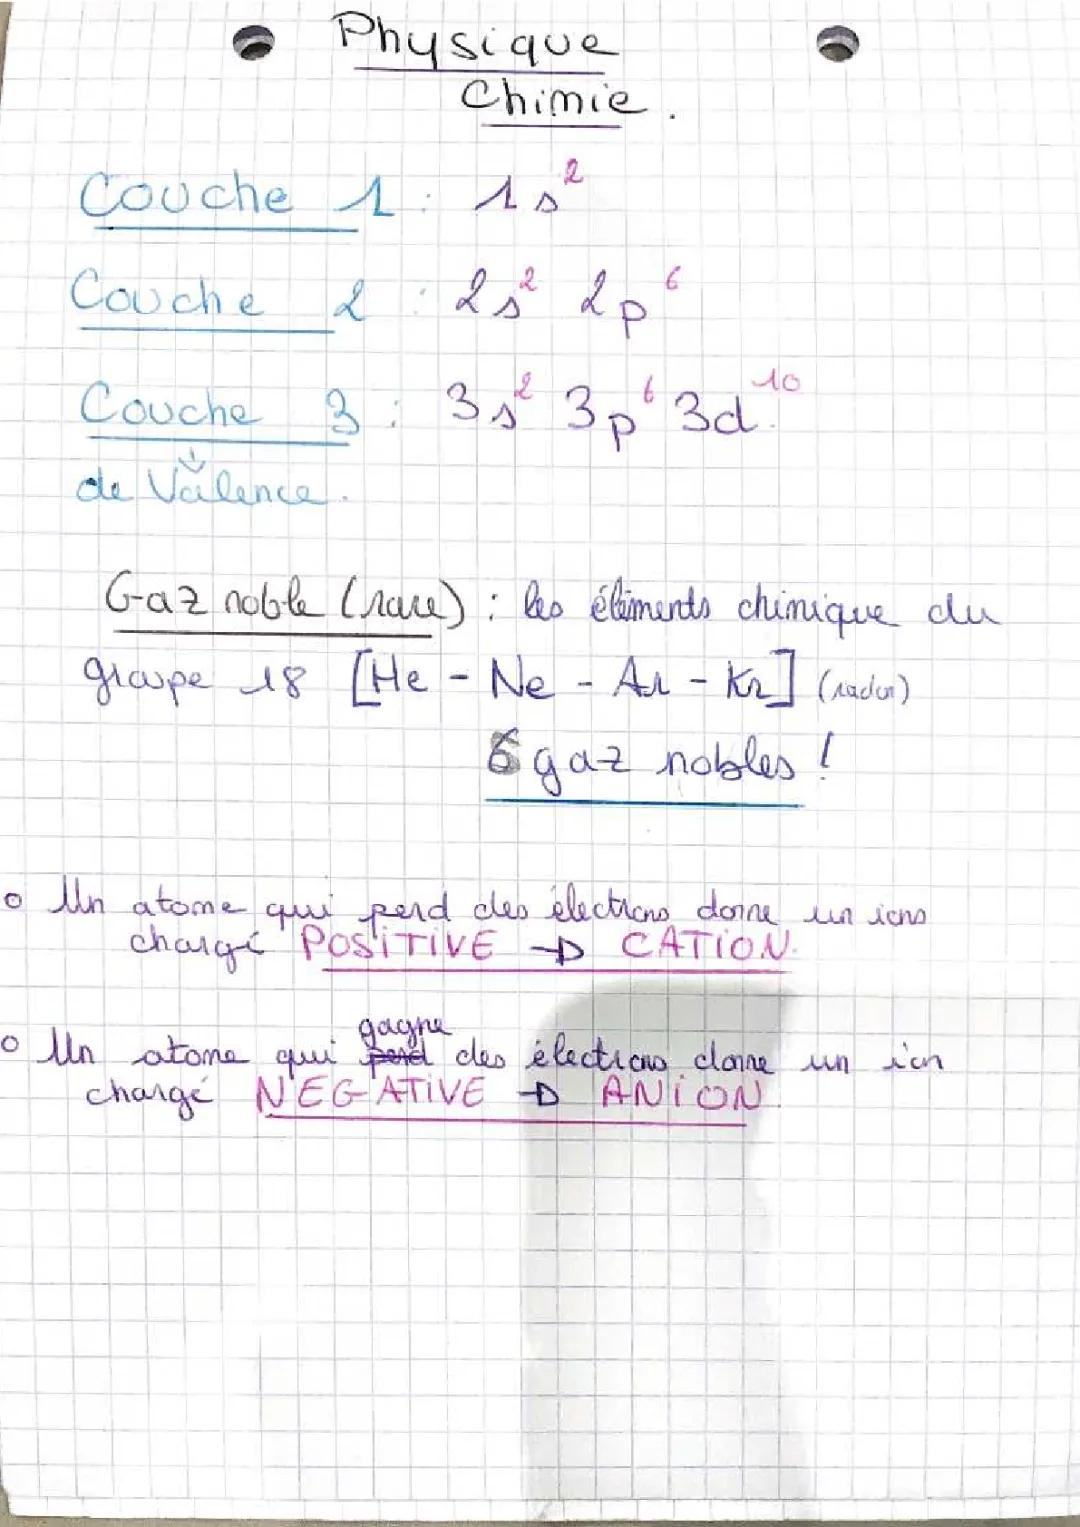 Physique
Chimie.
Couche 1 : 1s²
Couche 2 : 2s² 2p⁶
Couche 3 : 3s² 3p⁶ 3d¹⁰.
de Valence.
Gaz noble (rare) : les éléments chimique du
groupe 18 [He - Ne - Ar - Kr] (radon)
6 gaz nobles !
o Un atome qui perd des électrons donne un ions
chargé POSITIVE → CATION.
gagne
o Un atome qui perd des électrons donne un ion
chargé NEGATIVE → ANION.